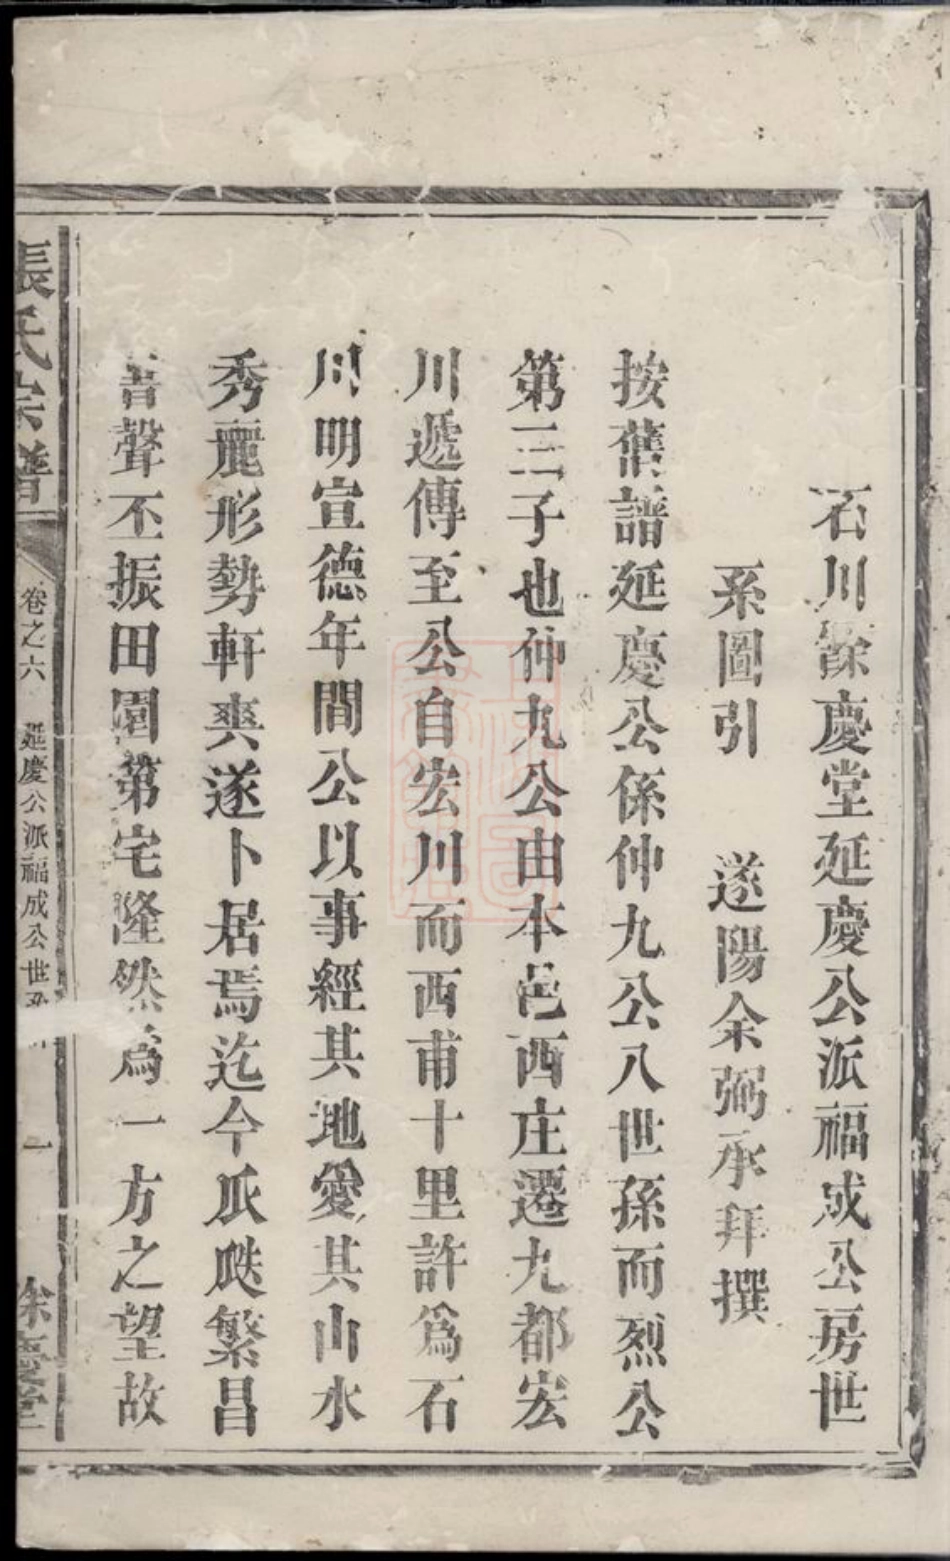 石川餘慶堂延慶公派福成公房世
系圖引　遂陽余弼承拜撰
按舊譜延慶公係仲九公八世孫而烈公
第三子也仲九公由本邑西庄遷九都宏
川遞傳至公自宏川而西甫十里許為石
川明宣德年間公以事經其地愛其山水
秀麗形勢軒爽遂卜居焉迄今瓜瓞繁昌
書聲丕振田園第宅隆然為一方之望故
張氏宗譜
卷之六　延慶公派福成公世系　一　餘慶堂